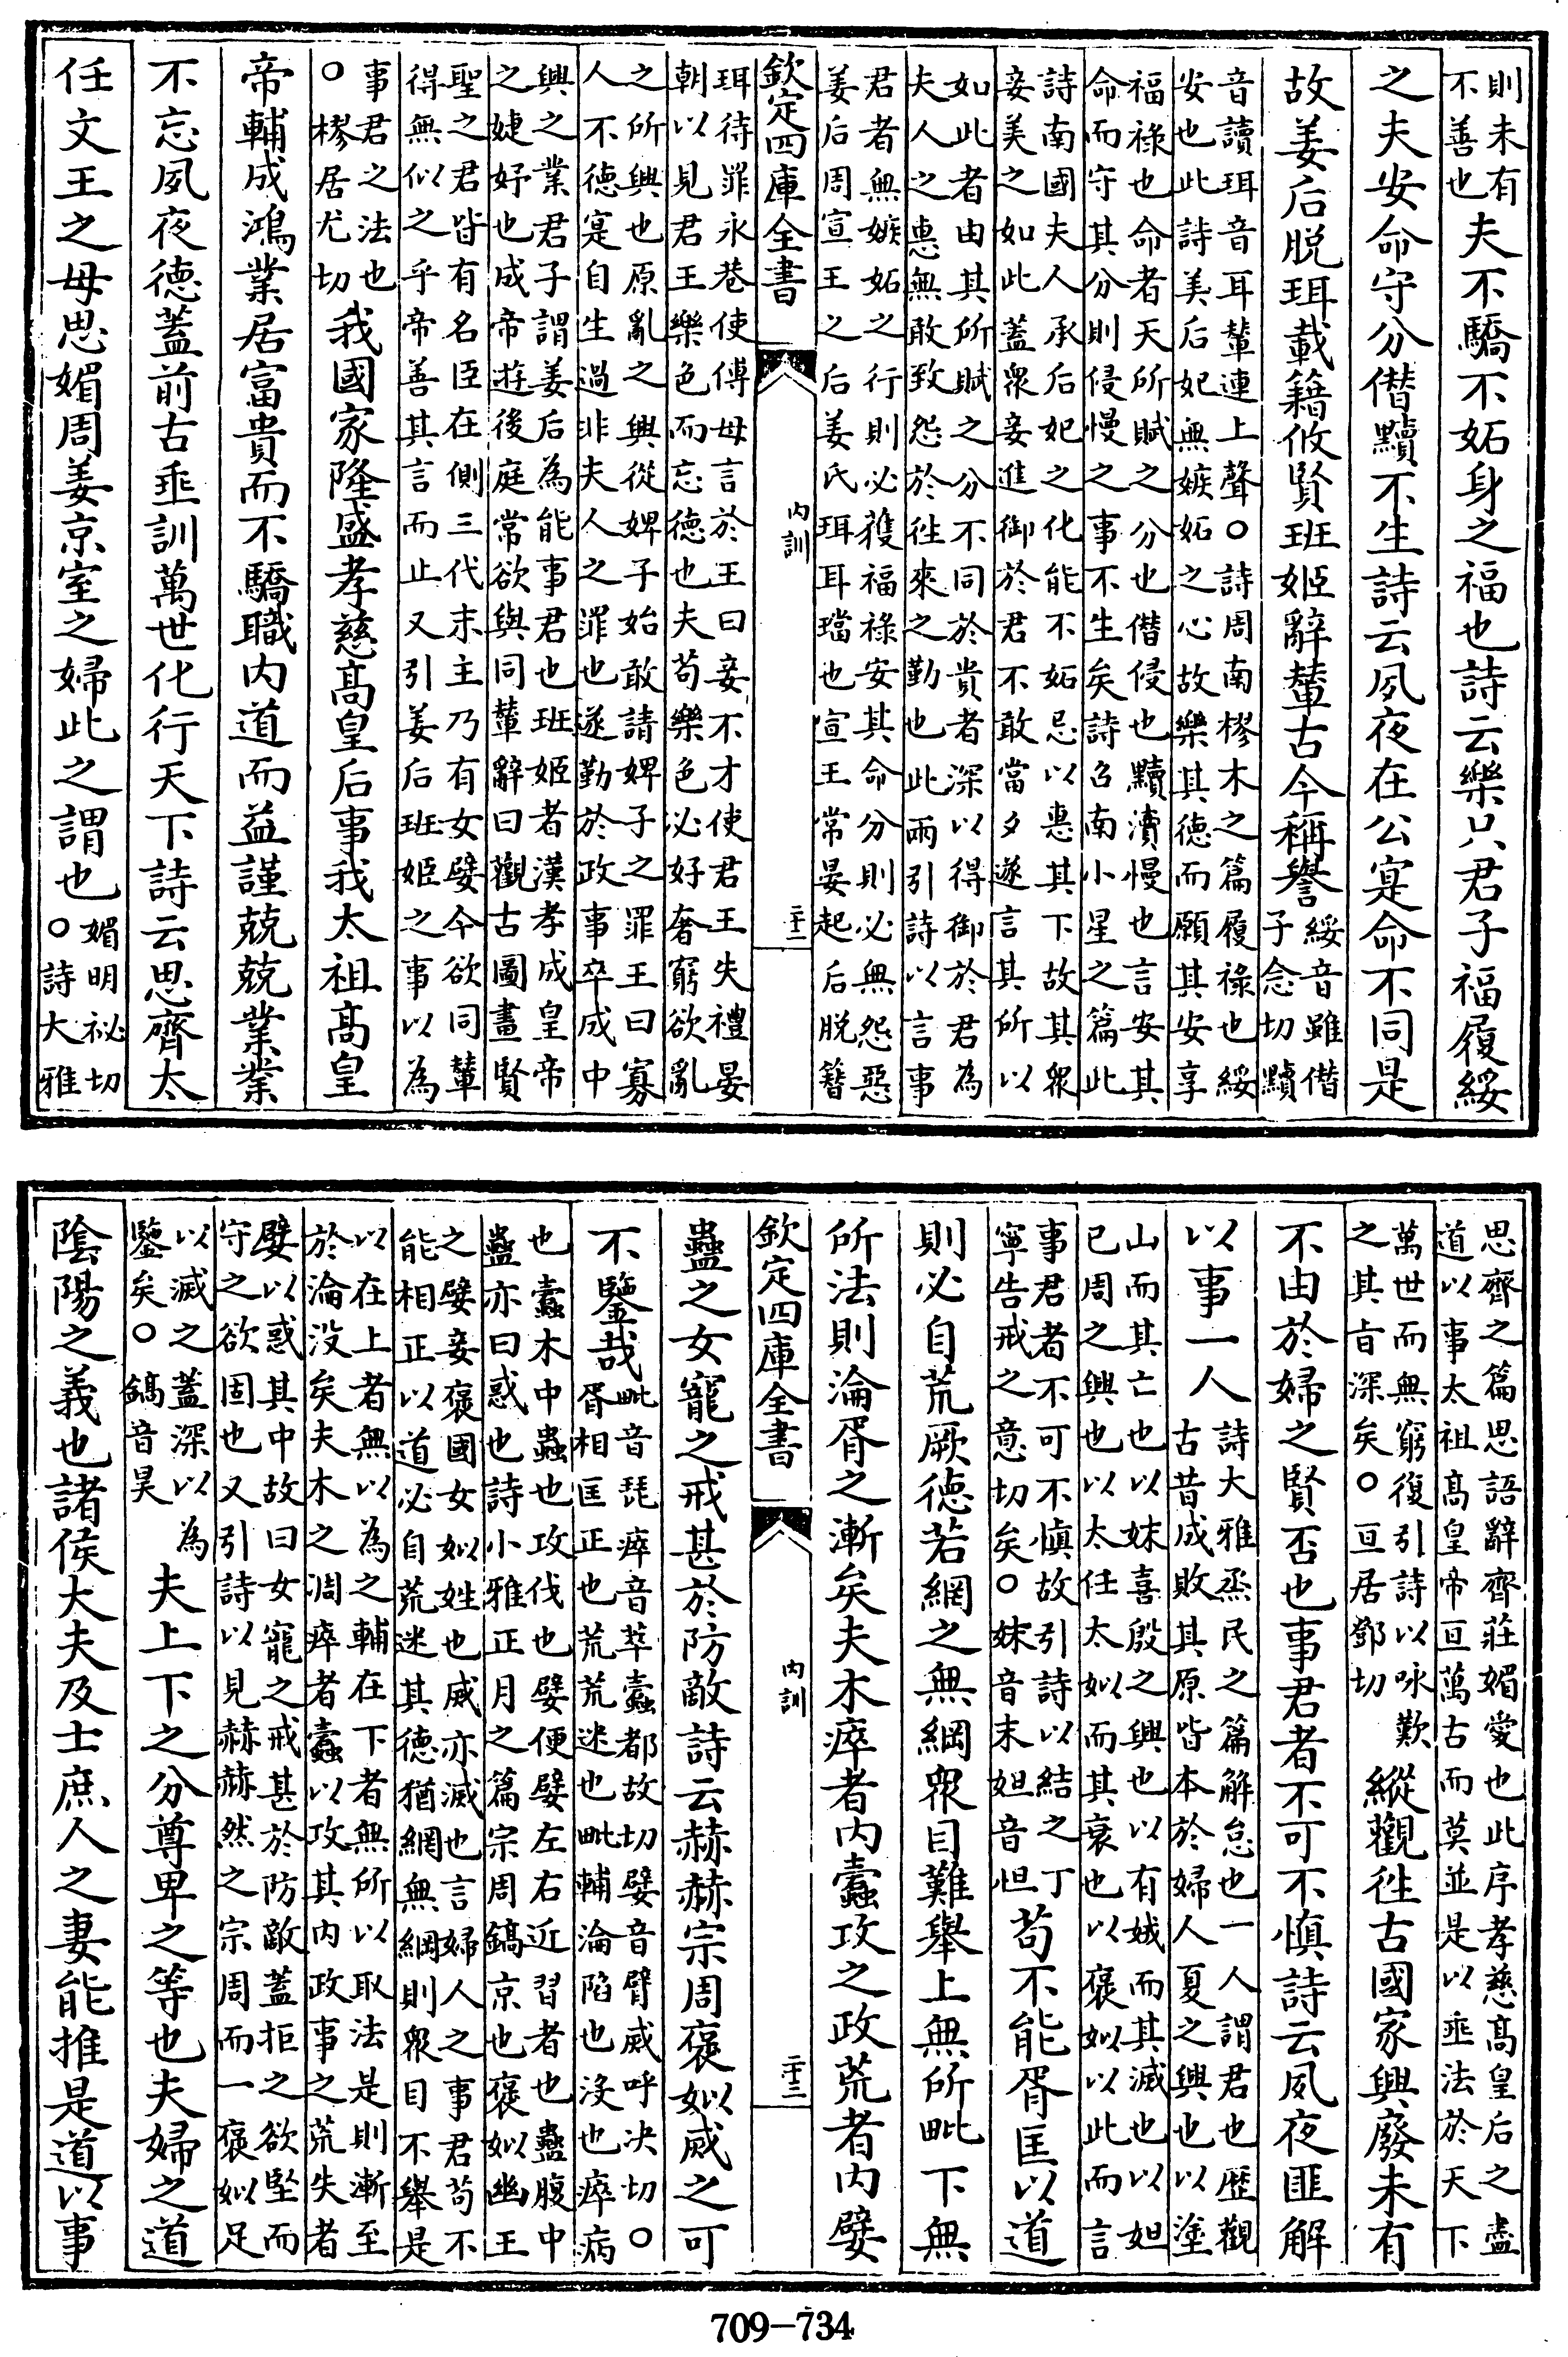 則未有
不善也
夫不驕不妬身之福也詩云樂只君子福履綏
之夫安命守分僣黷不生詩云夙夜在公寔命不同是
故姜后脱珥載籍攸賢班姬辭輦古今稱譽
綏音雖僣
子念切黷
音讀珥音耳輦連上聲○詩周南樛木之篇履祿也綏
安也此詩美后妃無嫉妬之心故樂其德而願其安享
福祿也命者天所賦之分也僣侵也黷瀆慢也言安其
命而守其分則侵慢之事不生矣詩召南小星之篇此
詩南國夫人承后妃之化能不妬忌以惠其下故其衆
妾美之如此蓋衆妾進御於君不敢當夕遂言其所以
如此者由其所賦之分不同於貴者深以得御於君為
夫人之惠無敢致怨於徃來之勤也此兩引詩以言事
君者無嫉妬之行則必獲福祿安其命分則必無怨惡
姜后周宣王之后姜氏珥耳璫也宣王常晏起后脱簪
欽定四庫全書
內訓
二十二
珥待罪永巷使傅母言於王曰妾不才使君王失禮晏
朝以見君王樂色而忘德也夫苟樂色必好奢窮欲亂
之所興也原亂之興從婢子始敢請婢子之罪王曰寡
人不德寔自生過非夫人之罪也遂勤於政事卒成中
興之業君子謂姜后為能事君也班姬者漢孝成皇帝
之婕妤也成帝遊後庭常欲與同輦辭曰觀古圖畫賢
聖之君皆有名臣在側三代末主乃有女嬖今欲同輦
得無似之乎帝善其言而止又引姜后班姬之事以為
事君之法也
○樛居尤切
我國家隆盛孝慈高皇后事我太祖高皇
帝輔成鴻業居富貴而不驕職内道而益謹兢兢業業
不忘夙夜德蓋前古垂訓萬世化行天下詩云思齊太
任文王之母思媚周姜京室之婦此之謂也
媚明祕切
○詩大雅
思齊之篇思語辭齊莊媚愛也此序孝慈高皇后之盡
道以事太祖高皇帝亘萬古而莫並是以垂法於天下
萬世而無窮復引詩以咏歎
之其旨深矣○亘居鄧切
縱觀徃古國家興廢未有
不由於婦之賢否也事君者不可不慎詩云夙夜匪解
以事一人
詩大雅烝民之篇解怠也一人謂君也歷觀
古昔成敗其原皆本於婦人夏之興也以塗
山而其亡也以妺喜殷之興也以有娀而其滅也以妲
已周之興也以太任太姒而其衰也以褒姒以此而言
事君者不可不慎故引詩以結之丁
寧告戒之意切矣○妺音末妲音怛
苟不能胥匡以道
則必自荒厥德若網之無綱衆目難舉上無所毗下無
所法則淪胥之漸矣夫木瘁者内蠹攻之政荒者内嬖
欽定四庫全書
內訓
二十三
蠱之女寵之戒甚於防敵詩云赫赫宗周褒姒烕之可
不鑒哉
毗音琵瘁音萃蠹都故切嬖音臂烕呼决切○
胥相匡正也荒荒迷也毗輔淪陷也沒也瘁病
也蠹木中蟲也攻伐也嬖便嬖左右近習者也蠱腹中
蠱亦曰惑也詩小雅正月之篇宗周鎬京也褒姒幽王
之嬖妾褒國女姒姓也烕亦滅也言婦人之事君苟不
能相正以道必自荒迷其德猶網無綱則衆目不舉是
以在上者無以為之輔在下者無所以取法是則漸至
於淪没矣夫木之凋瘁者蠹以攻其内政事之荒失者
嬖以惑其中故曰女寵之戒甚於防敵蓋拒之欲堅而
守之欲固也又引詩以見赫赫然之宗周而一褒姒足
以滅之蓋深以為
鑒矣○鎬音昊
夫上下之分尊卑之等也夫婦之道
陰陽之義也諸侯大夫及士庶人之妻能推是道以事
709-734